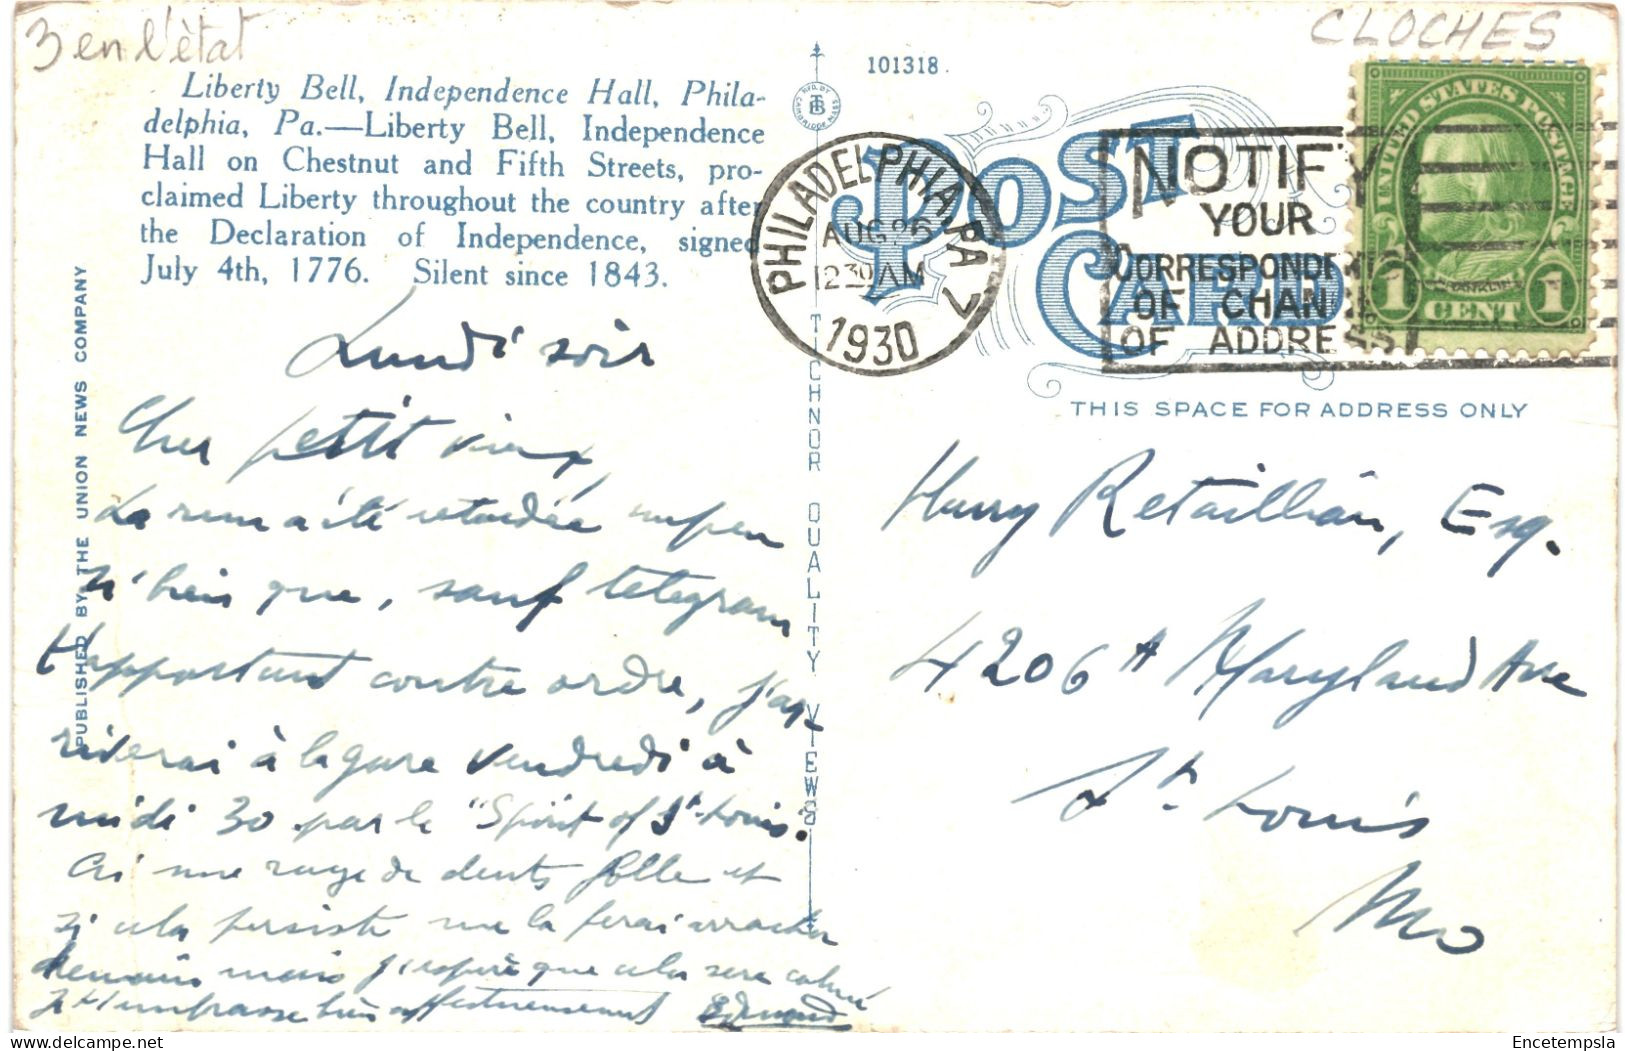 3 en l'état
CLOCHES
Liberty Bell, Independence Hall, Phila-
delphia, Pa.—Liberty Bell, Independence
Hall on Chestnut and Fifth Streets, pro-
claimed Liberty throughout the country after
the Declaration of Independence, signed
July 4th, 1776. Silent since 1843.
101318.
MFD. BY
TB
CAMBRIDGE, MASS.
POST
CARD
THIS SPACE FOR ADDRESS ONLY
PHILADELPHIA, PA
AUG 26
12 30 AM
1930
7
NOTIFY
YOUR
CORRESPONDENTS
OF CHANGE
OF ADDRESS
UNITED STATES POSTAGE
FRANKLIN
1 CENT 1
PUBLISHED BY THE UNION NEWS COMPANY
TICHNOR QUALITY VIEWS
Lundi soir
Cher petit vieux,
La a été retardée un peu
si bien que, sauf telegram
t'apportant contre ordre, j'ar-
riverai à la gare vendredi à
midi 30 par le "Spirit of St. Louis".
Ai une rage de dents folle et
si cela persiste me la ferai arracher
demain mais j'espère que cela sera calmé
Je t'embrasse bien affectueusement Edmond
Harry Retaillian, Esq.
4206 A Maryland Ave
St. Louis
Mo
Encetempsla